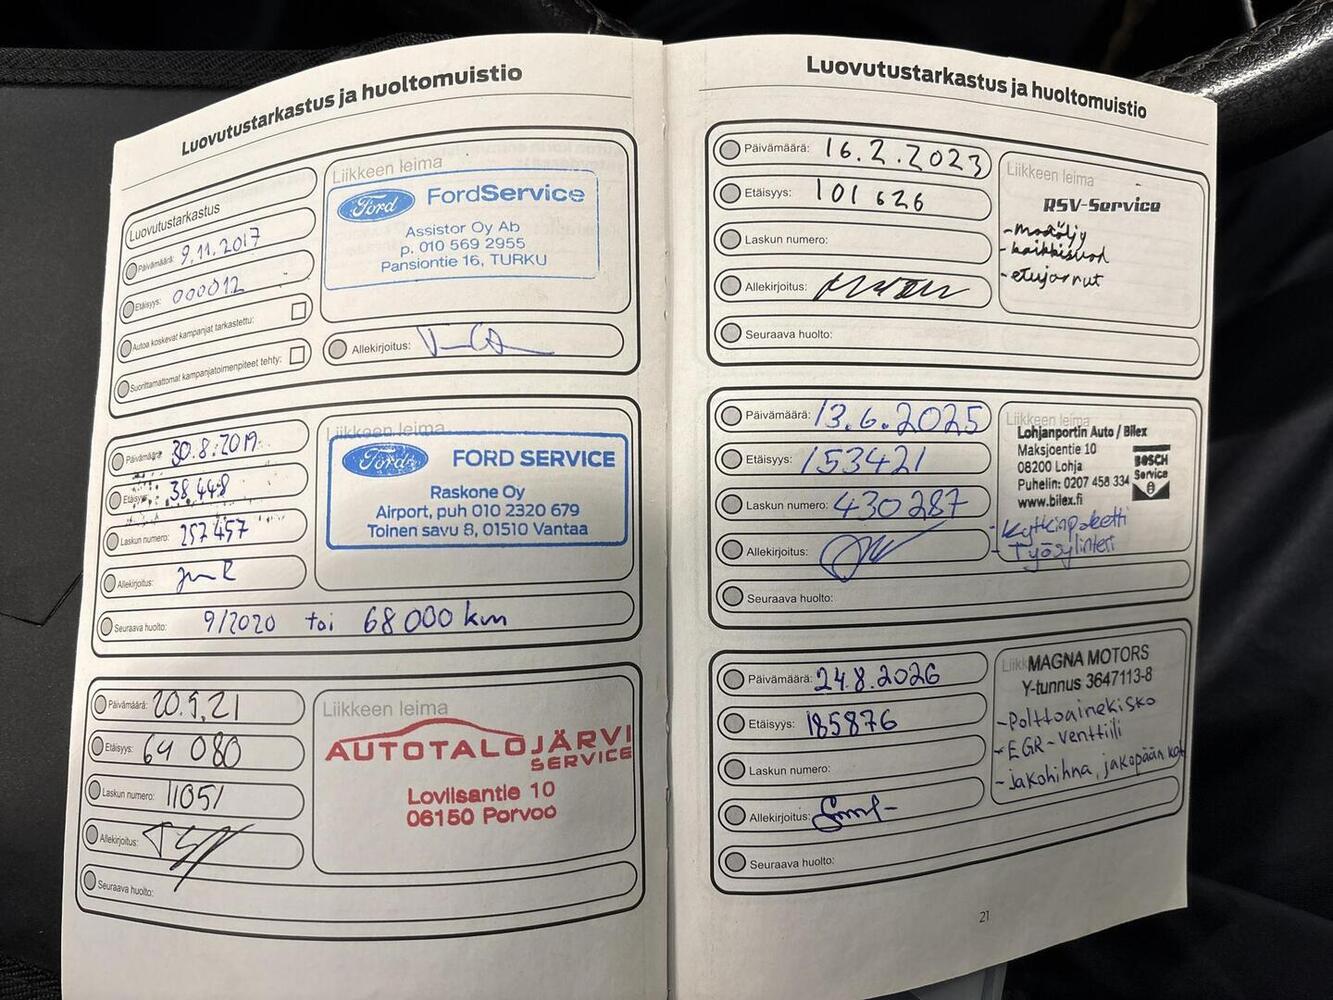 Luovutustarkastus ja huoltomuistio
Luovutustarkastus
Päivämäärä: 9.11.2017
Etäisyys: 000012
Autoa koskevat kampanjat tarkastettu:
Suorittamattomat kampanjatoimenpiteet tehty:
Liikkeen leima
Ford FordService
Assistor Oy Ab
p. 010 569 2955
Pansiontie 16, TURKU
Allekirjoitus:
Päivämäärä: 30.8.2019
Etäisyys: 38 448
Laskun numero: 257457
Allekirjoitus:
Seuraava huolto: 9/2020 tai 68 000 km
Liikkeen leima
Ford FORD SERVICE
Raskone Oy
Airport, puh 010 2320 679
Toinen savu 8, 01510 Vantaa
Päivämäärä: 20.5.21
Etäisyys: 64 080
Laskun numero: 11051
Allekirjoitus:
Seuraava huolto:
Liikkeen leima
AUTOTALOJÄRVI
SERVICE
Loviisantie 10
06150 Porvoo
Luovutustarkastus ja huoltomuistio
Päivämäärä: 16.2.2023
Etäisyys: 101 626
Laskun numero:
Allekirjoitus:
Seuraava huolto:
Liikkeen leima
RSV-Service
- moot.öljy
- kaikkisuod
- etujarrut
Päivämäärä: 13.6.2025
Etäisyys: 153421
Laskun numero: 430287
Allekirjoitus:
Seuraava huolto:
Liikkeen leima
Lohjanportin Auto / Bilex
Maksjoentie 10
08200 Lohja
Puhelin: 0207 458 334
www.bilex.fi
BOSCH
Service
- Kytkinpaketti
- Työsylinteri
Päivämäärä: 24.8.2026
Etäisyys: 185876
Laskun numero:
Allekirjoitus:
Seuraava huolto:
MAGNA MOTORS
Y-tunnus 3647113-8
- Polttoainekisko
- EGR-venttiili
- jakohihna, jakopään
21